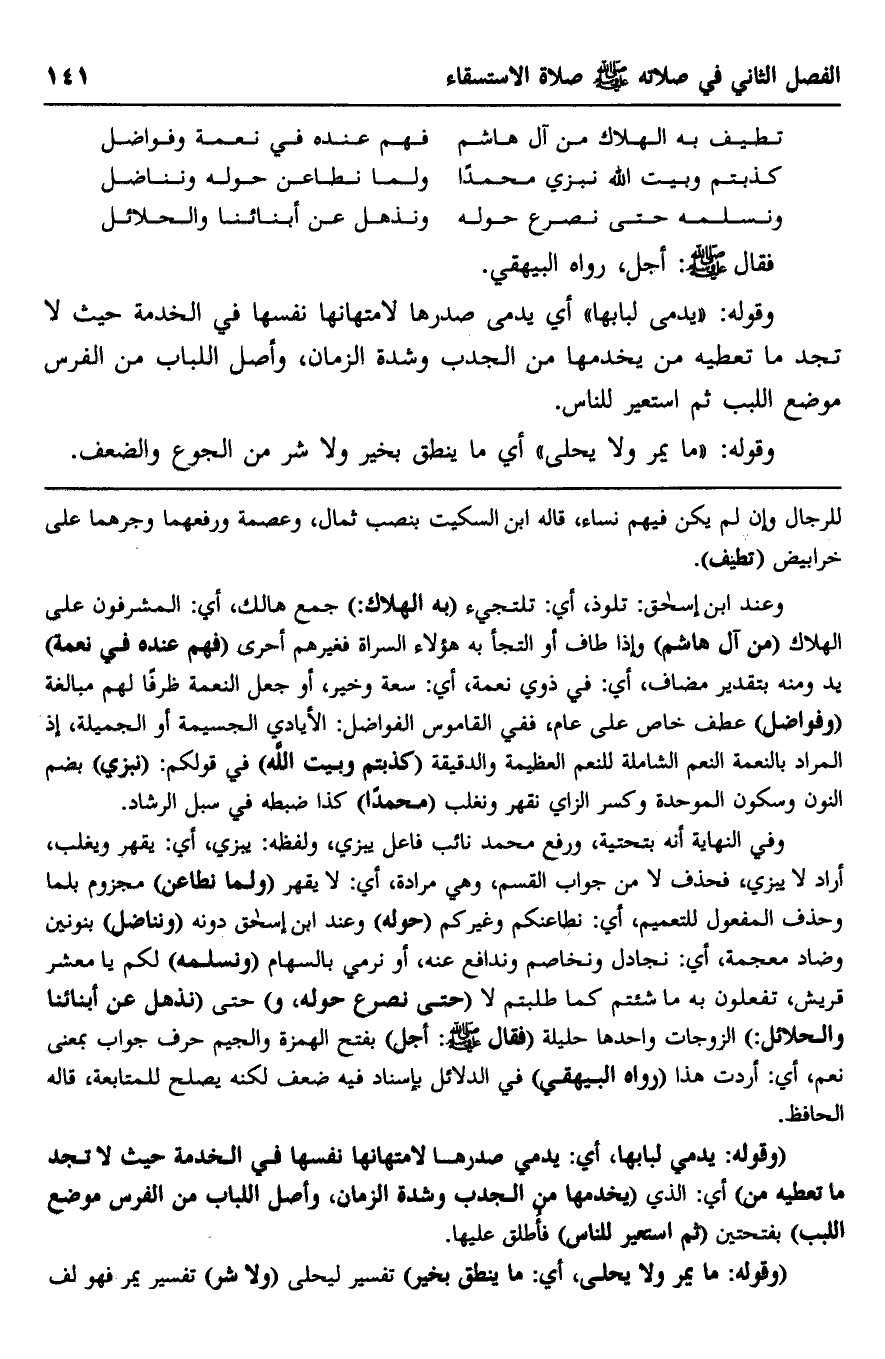 الفصل الثاني في صلاته ﷺ صلاة الاستسقاء ١٤١
تطيف به الهلاك من آل هاشم فهم عنده في نعمة وفواضل
كذبتم وبيت الله نبزي محمدًا ولما نطاعن حوله ونناضل
ونسلمه حتى نصرع حوله ونذهل عن أبنائنا والحلائل
فقال ﷺ: أجل، رواه البيهقي.
وقوله: «يدمى لبابها» أي يدمى صدرها لامتهانها نفسها في الخدمة حيث لا
تجد ما تعطيه من يخدمها من الجدب وشدة الزمان، وأصل اللباب من الفرس
موضع اللبب ثم استعير للناس.
وقوله: «ما يمر ولا يحلى» أي ما ينطق بخير ولا شر من الجوع والضعف.
للرجال وإن لم يكن فيهم نساء، قاله ابن السكيت بنصب ثمال، وعصمة ورفعهما وجرهما على
خرابيض (تطيف).
وعند ابن إسحٰق: تلوذ، أي: تلتجيء (به الهلاك:) جمع هالك، أي: المشرفون على
الهلاك (من آل هاشم) وإذا طاف أو التجأ به هؤلاء السراة فغيرهم أحرى (فهم عنده في نعمة)
يد ومنه بتقدير مضاف، أي: في ذوي نعمة، أي: سعة وخير، أو جعل النعمة ظرفًا لهم مبالغة
(وفواضل) عطف خاص على عام، ففي القاموس الفواضل: الأيادي الجسيمة أو الجميلة، إذ
المراد بالنعمة النعم الشاملة للنعم العظيمة والدقيقة (كذبتم وبيت اللّه) في قولكم: (نبزي) بضم
النون وسكون الموحدة وكسر الزاي نقهر ونغلب (محمدًا) كذا ضبطه في سبل الرشاد.
وفي النهاية أنه بتحتية، ورفع محمد نائب فاعل يبزي، ولفظه: يبزي، أي: يقهر ويغلب،
أراد لا يبزي، فحذف لا من جواب القسم، وهي مرادة، أي: لا يقهر (ولما نطاعن) مجزوم بلما
وحذف المفعول للتعميم، أي: نطاعنكم وغيركم (حوله) وعند ابن إسحٰق دونه (ونناضل) بنونين
وضاد معجمة، أي: نجادل ونخاصم وندافع عنه، أو نرمي بالسهام (ونسلمه) لكم يا معشر
قريش، تفعلون به ما شئتم كما طلبتم لا (حتى نصرع حوله، و) حتى (نذهل عن أبنائنا
والحلائل:) الزوجات واحدها حليلة (فقال ﷺ: أجل) بفتح الهمزة والجيم حرف جواب بمعنى
نعم، أي: أردت هذا (رواه البيهقي) في الدلائل بإسناد فيه ضعف لكنه يصلح للمتابعة، قاله
الحافظ.
(وقوله: يدمي لبابها، أي: يدمي صدرها لامتهانها نفسها في الخدمة حيث لا تجد
ما تعطيه من) أي: الذي (يخدمها من الجدب وشدة الزمان، وأصل اللباب من الفرس موضع
اللبب) بفتحتين (ثم استعير للناس) فأُطلق عليها.
(وقوله: ما يمر ولا يحلى، أي: ما ينطق بخير) تفسير ليحلى (ولا شر) تفسير يمر فهو لف